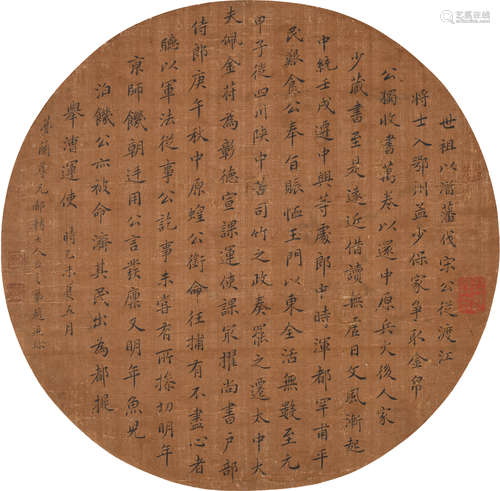 世祖以潛藩伐宋公從渡江
將士入鄂州益少保家爭取金帛
公獨收書萬卷以還中原兵火後人家
少藏書至是遠近借讀無居日文風漸起
中統壬戌遷中興等處郎中時渾都罕甫平
民艱食公奉旨賑恤玉門以東全活無數至元
甲子從四川陝中書司竹之政奏罷之遷太中大
夫佩金符為彰德宣課運使課最擢尚書戶部
侍郎庚午秋中原蝗公銜命往捕有不盡心者
聽以軍法從事公訖事未嘗有所捺切明年
京師饑朝廷用公言發廩又明年魚兒
泊饑公六被命濟其民出為都提
舉漕運使 時乙未夏五月